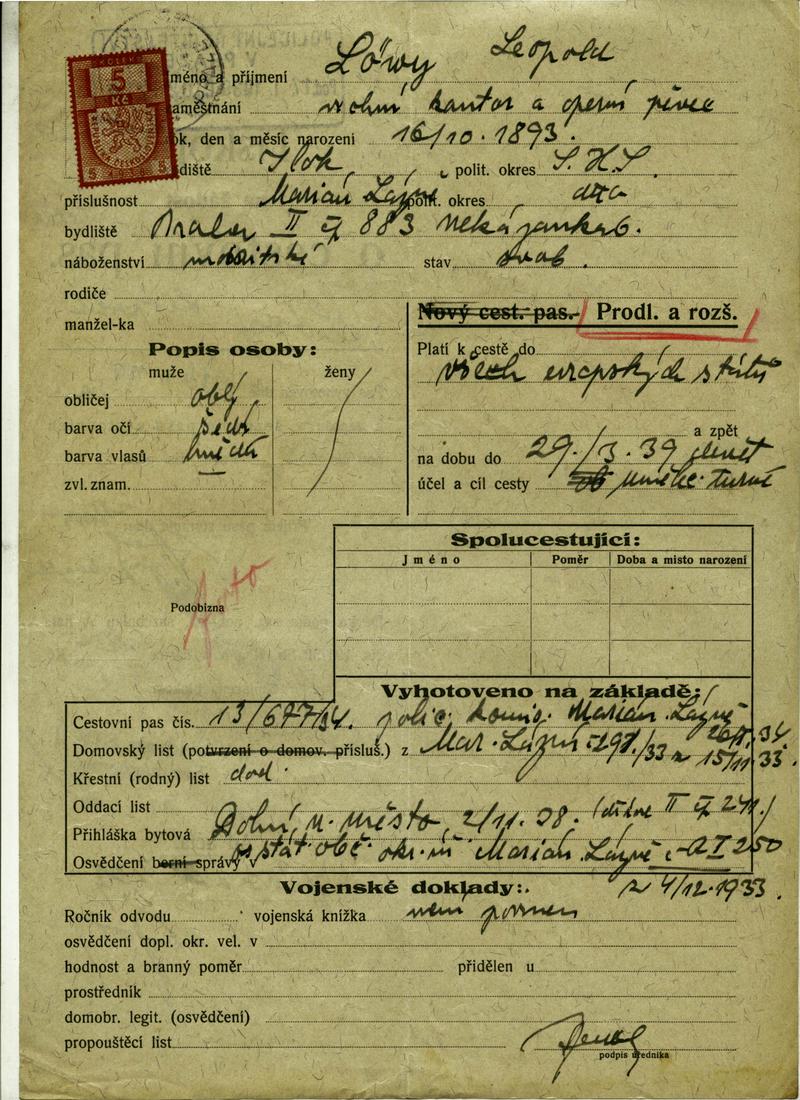 KOLEK
5
Kč
REPUBLIKA ČESKOSLOVENSKÁ
5 5
méno a příjmení Löwy Leopold
aměstnání vrchní kantor a operní pěvec
ok, den a měsíc narození 16/10. 1893.
diště Ilok, polit. okres S.H.S.
příslušnost Marián. Lázně polit. okres dtto
bydliště II čp 883 Nekázanka 6.
náboženství stav svob.
rodiče
manžel-ka
Nový cest. pas. Prodl. a rozš.
Popis osoby:
muže ženy
obličej oblý
barva očí šedá
barva vlasů hnědá
zvl. znam. —
Platí k cestě do
všech evropských států
a zpět
na dobu do 29./3. 39
účel a cíl cesty
Spolucestující:
Jméno Poměr Doba a misto narození
Podobizna
foto
Vyhotoveno na základě:
Cestovní pas čís. 13/677/34. polic. komis. Marián. Lázně
Domovský list (potvrzení o domov. přísluš.) z Mar. Lázní 15/11 33.
Křestní (rodný) list
Oddací list
Přihláška bytová Dolní, město, 2/11. 38.
Osvědčení berní správy v stát. obč. Marián. Lázně
z 4/12. 1933.
Vojenské doklady:
Ročník odvodu vojenská knížka není povinen
osvědčení dopl. okr. vel. v
hodnost a branný poměr přidělen u
prostředník
domobr. legit. (osvědčení)
propouštěcí list
podpis úředníka